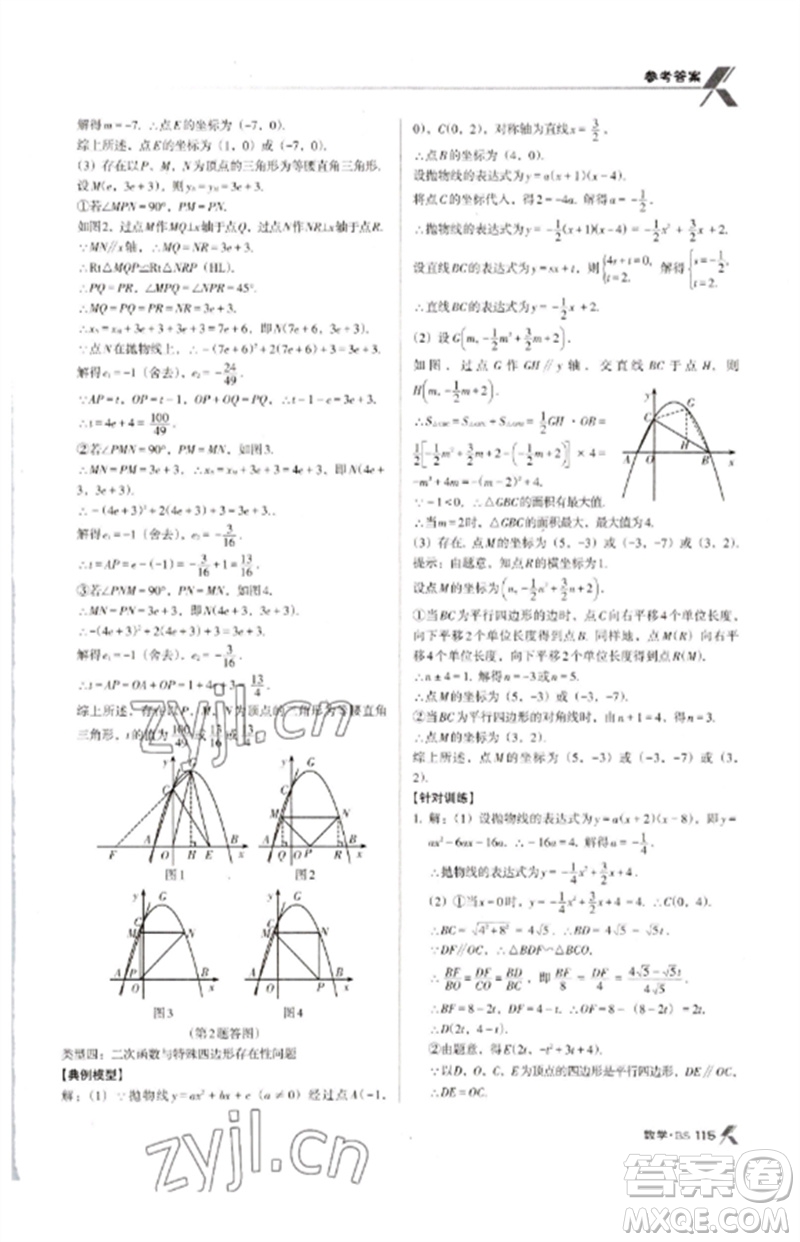 参考答案
解得m=-7. ∴点E的坐标为(-7, 0).
综上所述, 点E的坐标为(1, 0)或(-7, 0).
(3)存在以P、M、N为顶点的三角形为等腰直角三角形.
设M(e, 3e+3), 则yN=yM=3e+3.
①若∠MPN=90°, PM=PN.
如图2, 过点M作MQ⊥x轴于点Q, 过点N作NR⊥x轴于点R.
∵MN∥x轴, ∴MQ=NR=3e+3.
∴Rt△MQP≌Rt△NRP(HL).
∴PQ=PR, ∠MPQ=∠NPR=45°.
∴MQ=PQ=PR=NR=3e+3.
∴xN=xM+3e+3+3e+3=7e+6, 即N(7e+6, 3e+3).
∵点N在抛物线上, ∴-(7e+6)²+2(7e+6)+3=3e+3.
解得e₁=-1(舍去), e₂=-24/49.
∵AP=t, OP=t-1, OP+OQ=PQ,
∴t=4e+4=100/49.
②若∠PMN=90°, PM=MN, 如图3.
∴MN=PM=3e+3, ∴xN=xM+3e+3=4e+3, 即N(4e+3, 3e+3).
∴-(4e+3)²+2(4e+3)+3=3e+3.
解得e₁=-1(舍去), e₂=-3/16.
∴t=AP=e-(-1)=-3/16+1=13/16.
③若∠PNM=90°, PN=MN, 如图4.
∴MN=PN=3e+3, N(4e+3, 3e+3).
∴-(4e+3)²+2(4e+3)+3=3e+3.
解得e₁=-1(舍去), e₂=-3/16.
∴t=AP=OA+OP=1+4e+3=13/4.
综上所述, 存在以P、M、N为顶点的三角形为等腰直角
三角形, t的值为100/49或13/16或13/4.
y C G F A O H E B x
图1
y C G M N A Q O P R B x
图2
y C G M N A P O B x
图3
y C G M N A O P B x
图4
(第2题答图)
类型四: 二次函数与特殊四边形存在性问题
【典例模型】
解: (1)∵抛物线y=ax²+bx+c(a≠0)经过点A(-1,
0), C(0, 2), 对称轴为直线x=3/2,
∴点B的坐标为(4, 0).
设抛物线的表达式为y=a(x+1)(x-4).
将点C的坐标代入, 得2=-4a. 解得a=-1/2.
∴抛物线的表达式为y=-1/2(x+1)(x-4)=-1/2x²+3/2x+2.
设直线BC的表达式为y=sx+t, 则{4s+t=0, t=2. 解得{s=-1/2, t=2.
∴直线BC的表达式为y=-1/2x+2.
(2)设G(m, -1/2m²+3/2m+2).
如图, 过点G作GH∥y轴, 交直线BC于点H, 则
H(m, -1/2m+2).
∴S△GBC=S△GHC+S△GHB=1/2GH·OB=
1/2[-1/2m²+3/2m+2-(-1/2m+2)]×4=
-m²+4m=-(m-2)²+4.
y G C H A O B x
∵-1<0, ∴△GBC的面积有最大值.
∴当m=2时, △GBC的面积最大, 最大值为4.
(3)存在. 点M的坐标为(5, -3)或(-3, -7)或(3, 2).
提示: 由题意, 知点R的横坐标为1.
设点M的坐标为(n, -1/2n²+3/2n+2).
①当BC为平行四边形的边时, 点C向右平移4个单位长度,
向下平移2个单位长度得到点B. 同样地, 点M(R)向右平
移4个单位长度, 向下平移2个单位长度得到点R(M).
∴n±4=1. 解得n=-3或n=5.
∴点M的坐标为(5, -3)或(-3, -7).
②当BC为平行四边形的对角线时, 由n+1=4, 得n=3.
∴点M的坐标为(3, 2).
综上所述, 点M的坐标为(5, -3)或(-3, -7)或(3,
2).
【针对训练】
1. 解: (1)设抛物线的表达式为y=a(x+2)(x-8), 即y=
ax²-6ax-16a. ∴-16a=4. 解得a=-1/4.
∴抛物线的表达式为y=-1/4x²+3/2x+4.
(2)①当x=0时, y=-1/4x²+3/2x+4=4. ∴C(0, 4).
∴BC=√(4²+8²)=4√5. ∴BD=4√5-√5t.
∵DF∥OC, ∴△BDF∽△BCO.
∴BF/BO=DF/CO=BD/BC, 即BF/8=DF/4=(4√5-√5t)/(4√5).
∴BF=8-2t, DF=4-t. ∴OF=8-(8-2t)=2t.
∴D(2t, 4-t).
②由题意, 得E(2t, -t²+3t+4).
∵以D、O、C、E为顶点的四边形为平行四边形, DE∥OC,
∴DE=OC.
数学·BS 115
zyjl.cn
zyjl.cn
答案卷
MXQE.COM